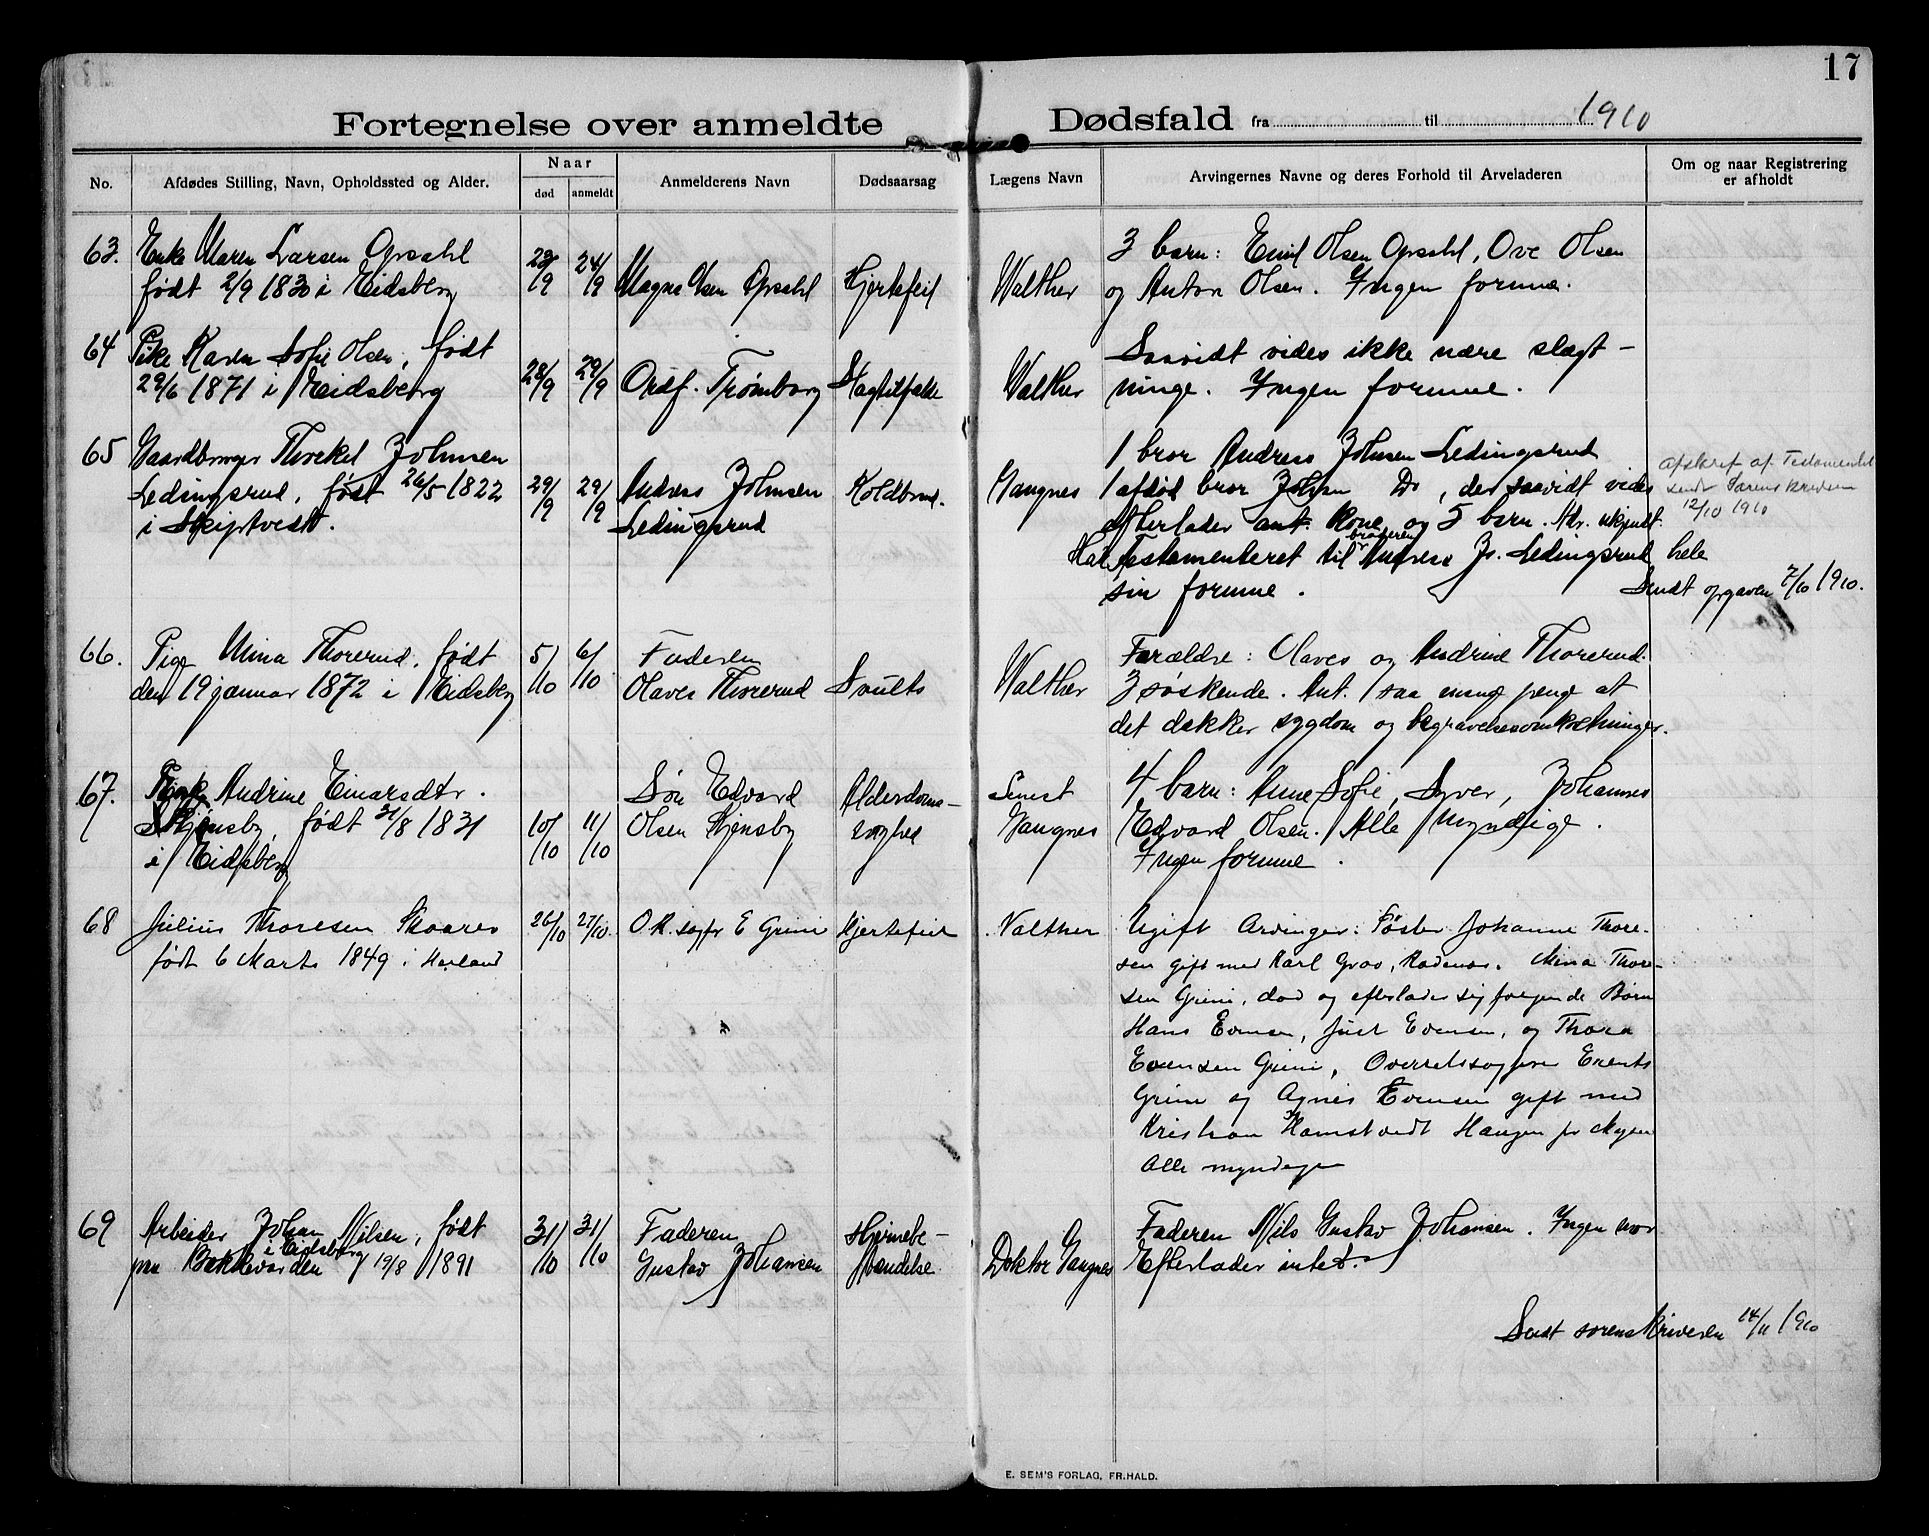 17
Fortegnelse over anmeldte Dødsfald fra til 1910
No. Afdødes Stilling, Navn, Opholdssted og Alder. Naar død anmeldt Anmelderens Navn Dødsaarsag Lægens Navn Arvingernes Navne og deres Forhold til Arveladeren Om og naar Registrering er afholdt
63. Enke Maren Larsen Opsahl
født 2/9 1830 i Eidsberg
23/9 24/9
Magnus Olsen Opsahl
Hjertefeil
Walther
3 barn: Emil Olsen Opsahl, Ove Olsen
og Anton Olsen. Ingen formue.
64 Pike Karen Sofie Olsen, født
29/6 1871 i Eidsberg
28/9 29/9
Ordf. Trømborg
Slagtilfælde
Walther
Saavidt vides ikke nære slægt-
ninge. Ingen formue.
65 Gaardbruger Thorkel Johnsen
Ledingsrud, født 26/5 1822
i Skiptvedt.
29/9 29/9
Andreas Johnsen
Ledingsrud
Koldbrand.
Gangnes
1 bror Andreas Johnsen Ledingsrud
1 afdød bror Johan Do, der saavidt vides
efterlader ant. kone og 5 barn. Adr. ukjendt.
Har testamenteret til broderen Andreas Js. Ledingsrud hele
sin formue.
afskrift af Testamentet
sendt Sorenskriveren
12/10 1910
Sendt opgaven 7/10 1910.
66. Pige Mina Thorerud, født
den 19 januar 1872 i Eidsberg
5/10 6/10
Faderen
Olaves Thorerud
Svulst
Walther
Forældre: Olaves og Andrine Thorerud.
3 søskende. Ant. saa mange penge at
det dækker sygdom og begravelsesomkostninger.
67. Enke Andrine Einarsdtr.
Skjensby, født 31/8 1831
i Eidsberg
10/10 11/10
Søn Edvard
Olsen Skjensby
Alderdoms-
svaghed
Senest
Gangnes
4 barn: Anne Sofie, Syver, Johannes
Edvard Olsen. Alle Myndige.
Ingen formue.
68 Julius Thoresen Skaares
født 6 Marts 1849 i Herland
26/10 27/10.
O.R. sagfr E Grini
Hjertefeil
Walther
Ugift Arvinger: Søster Johanne Thore-
sen gift med Karl Graa, Rødenes. Mina Thore-
sen Grini, død og efterlader sig følgende Børn
Hans Evensen, Just Evensen, og Thora
Evensen Grini, Overretssagfører Erents
Grini og Agnes Evensen gift med
Kristian Hamstvedt Haugen pr Mysen
Alle myndige
69 Arbeider Johan Nilsen, født
i Eidsberg
paa Bakkevarden 19/8 1891
31/10 31/10
Faderen
Gustav Johansen
Hjernebe-
tændelse.
Doktor Gangnes
Faderen Nils Gustav Johansen. Ingen mor
Efterlader intet.
Sendt sorenskriveren 14/11 1910
E. SEM'S FORLAG, FR.HALD.